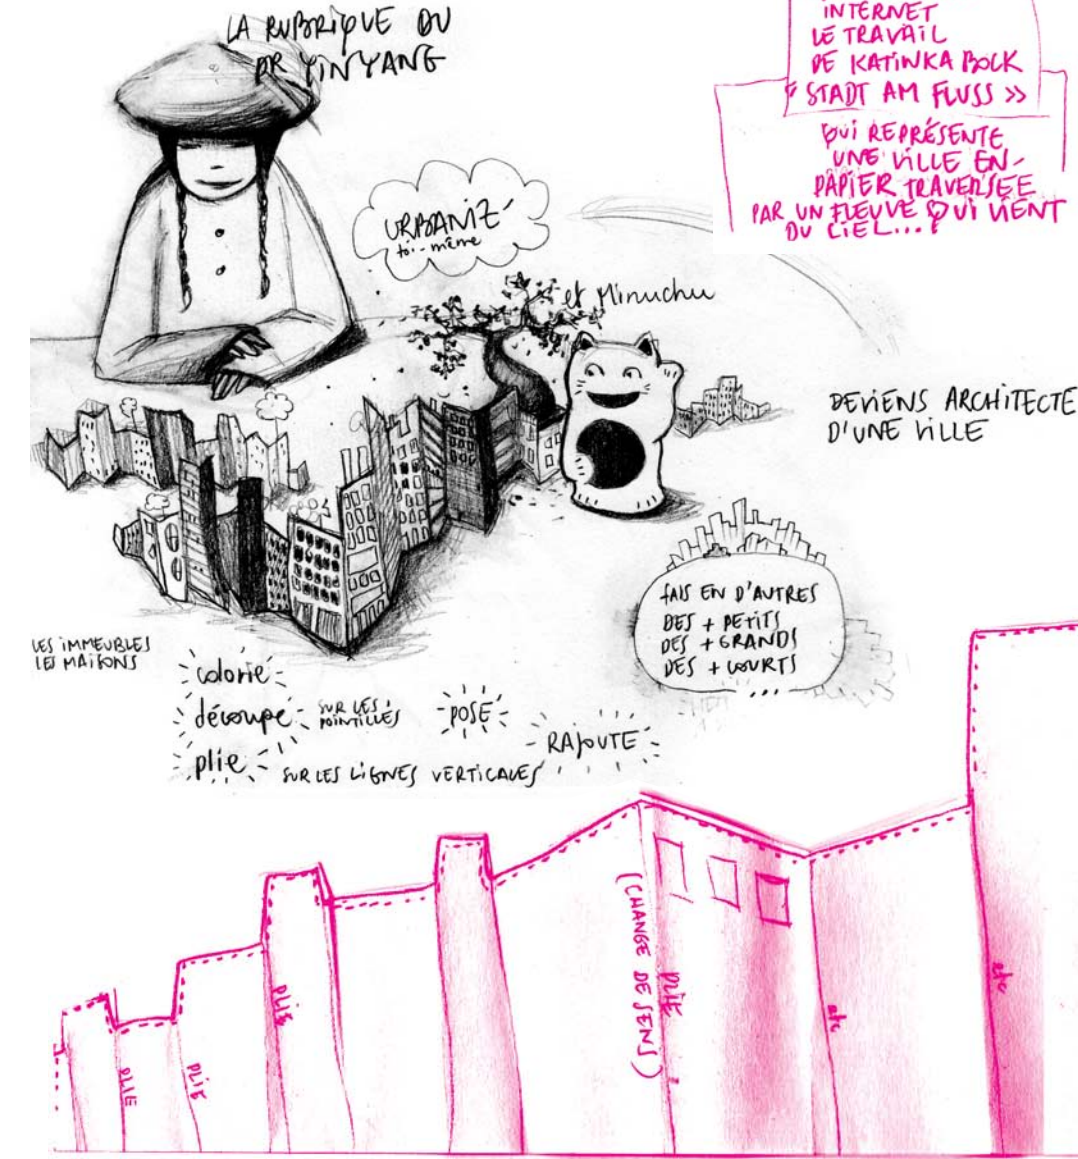 LA RUBRIQUE DU
DR YINYANG
INTERNET
LE TRAVAIL
DE KATINKA BOCK
« STADT AM FLUSS »
QUI REPRÉSENTE
UNE VILLE EN
PAPIER TRAVERSÉE
PAR UN FLEUVE QUI VIENT
DU CIEL...?
URBANIZ-
toi-même
et Minuchu
DEVIENS ARCHITECTE
D'UNE VILLE
FAIS EN D'AUTRES
DES + PETITS
DES + GRANDS
DES + COURTS
...
LES IMMEUBLES
LES MAISONS
colorie
découpe SUR LES POINTILLÉS
POSE
plie SUR LES LIGNES VERTICALES
RAJOUTE
PLIE
PLIE
PLIE
PLIE
(CHANGE DE SENS)
etc
etc